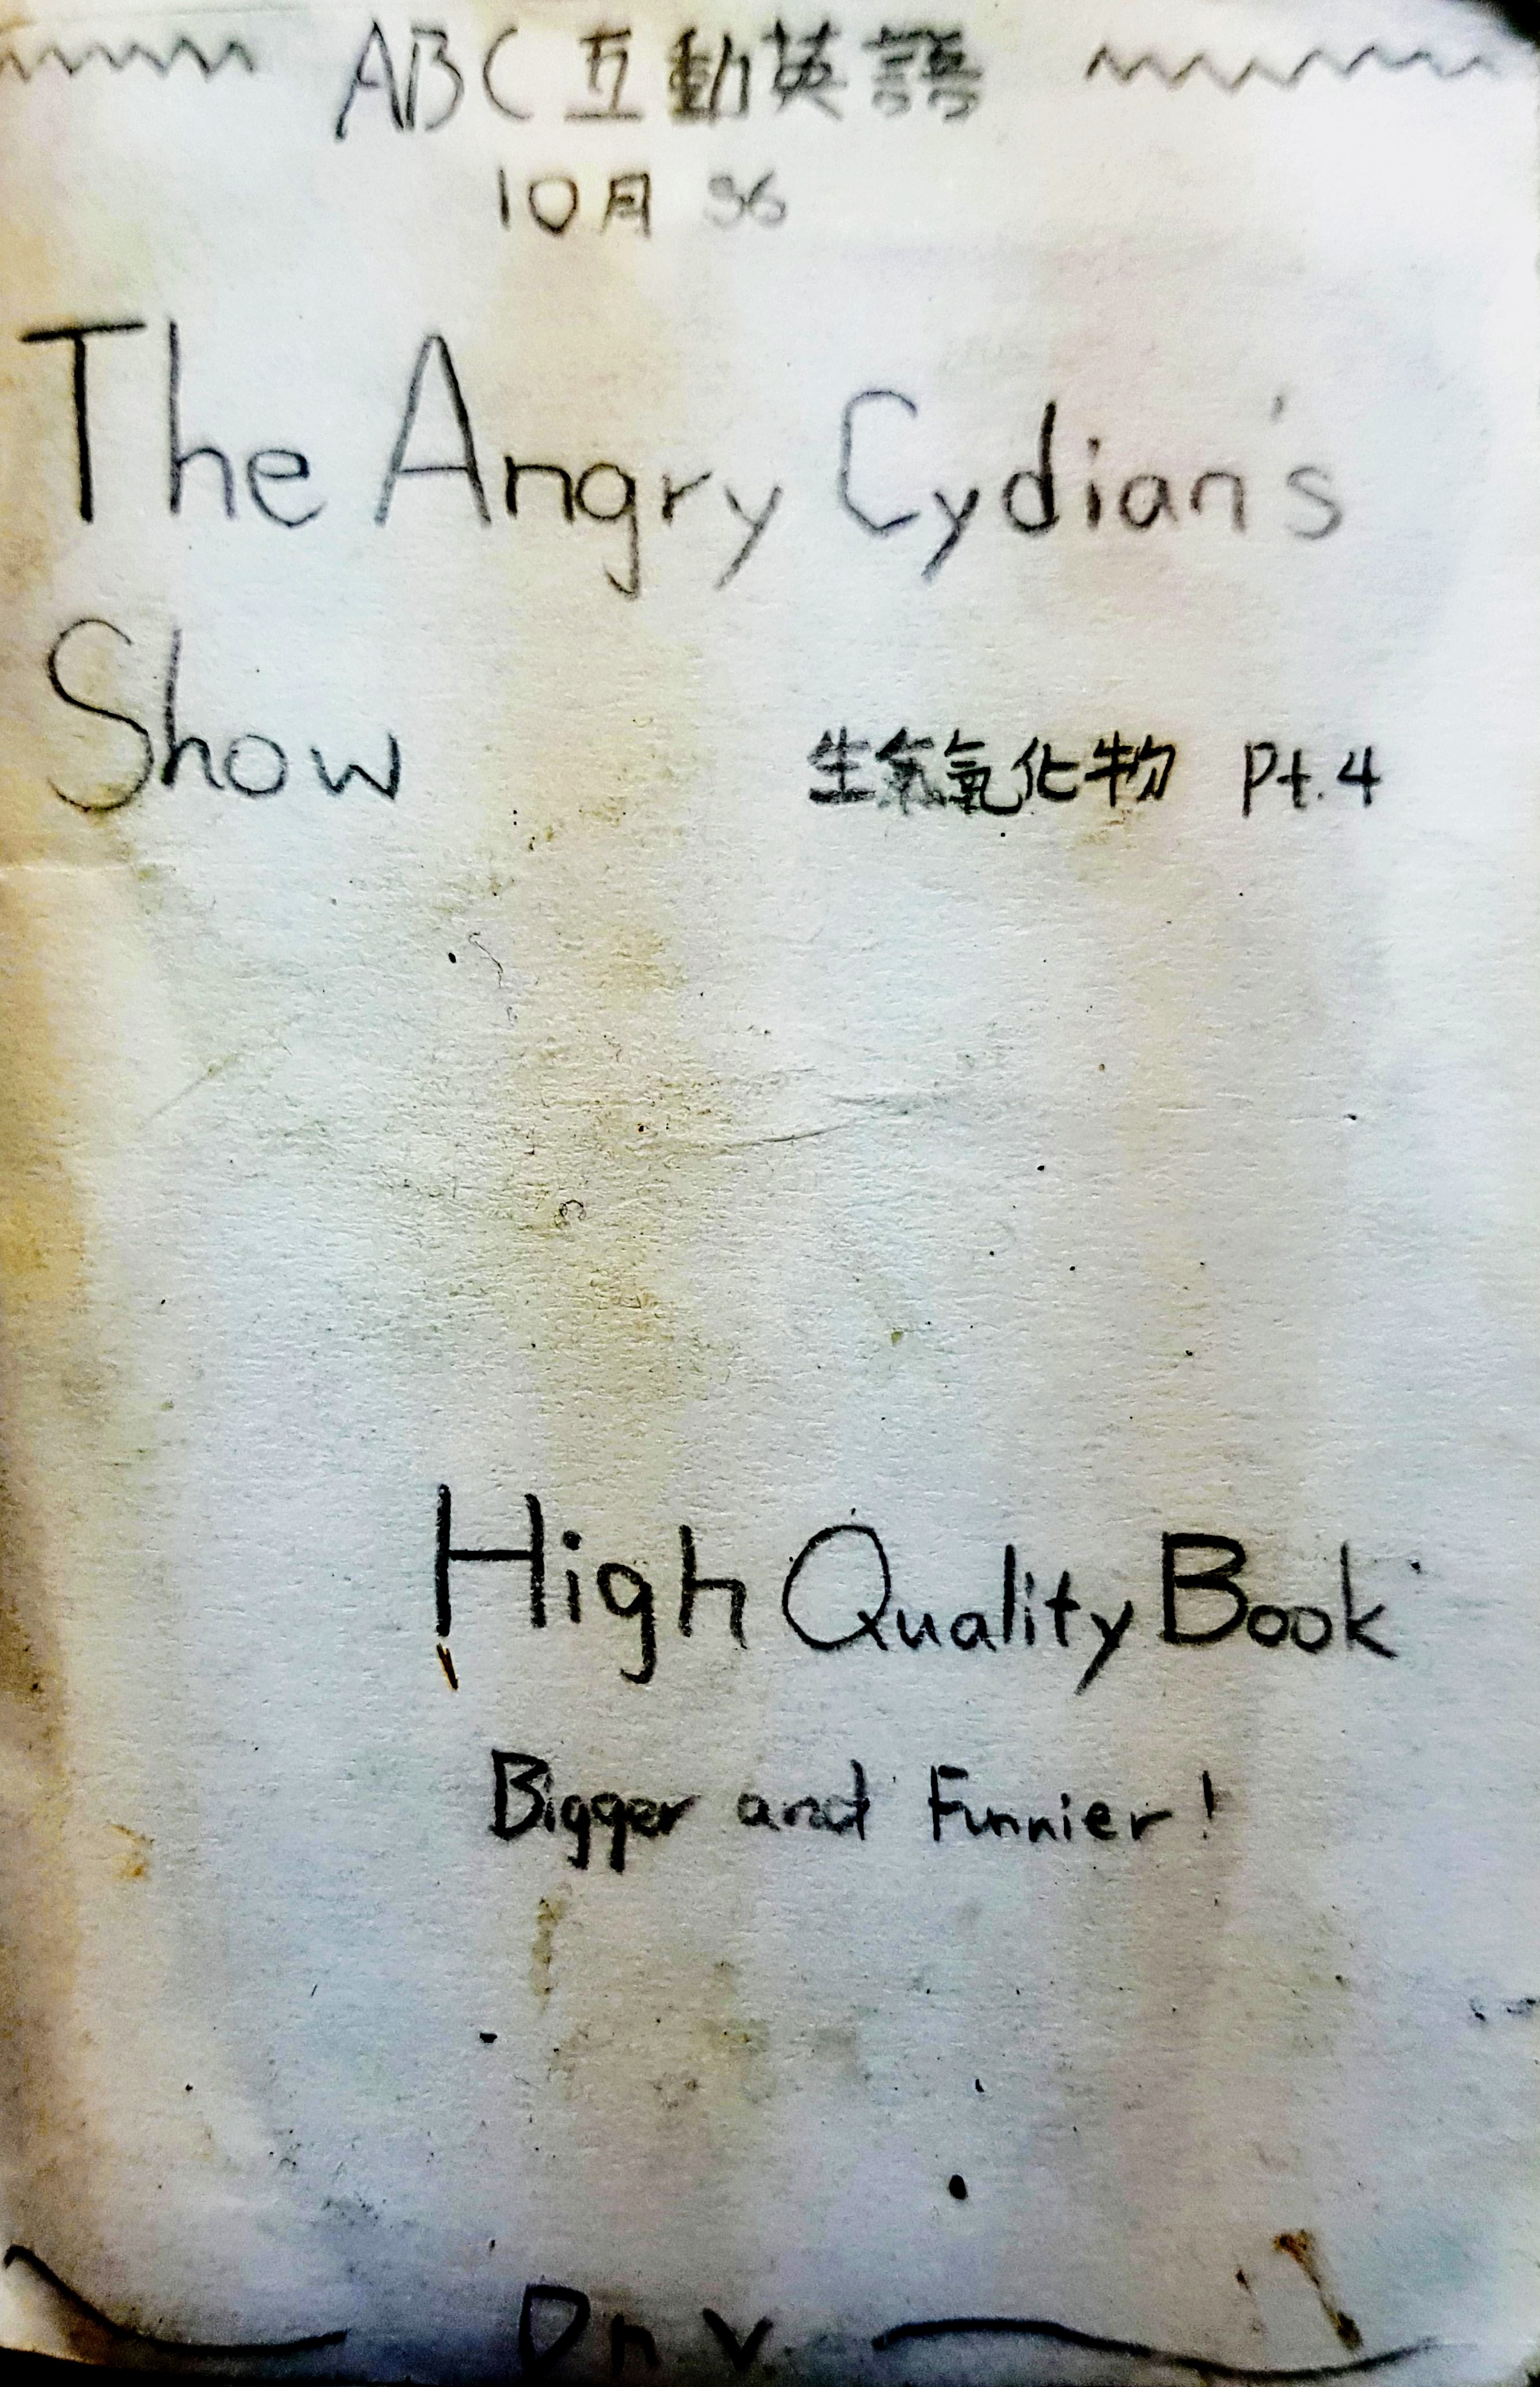 ABC互動英語
10月 S6
The Angry Cydian's
Show
生氣氧化物 Pt.4
High Quality Book
Bigger and Funnier!